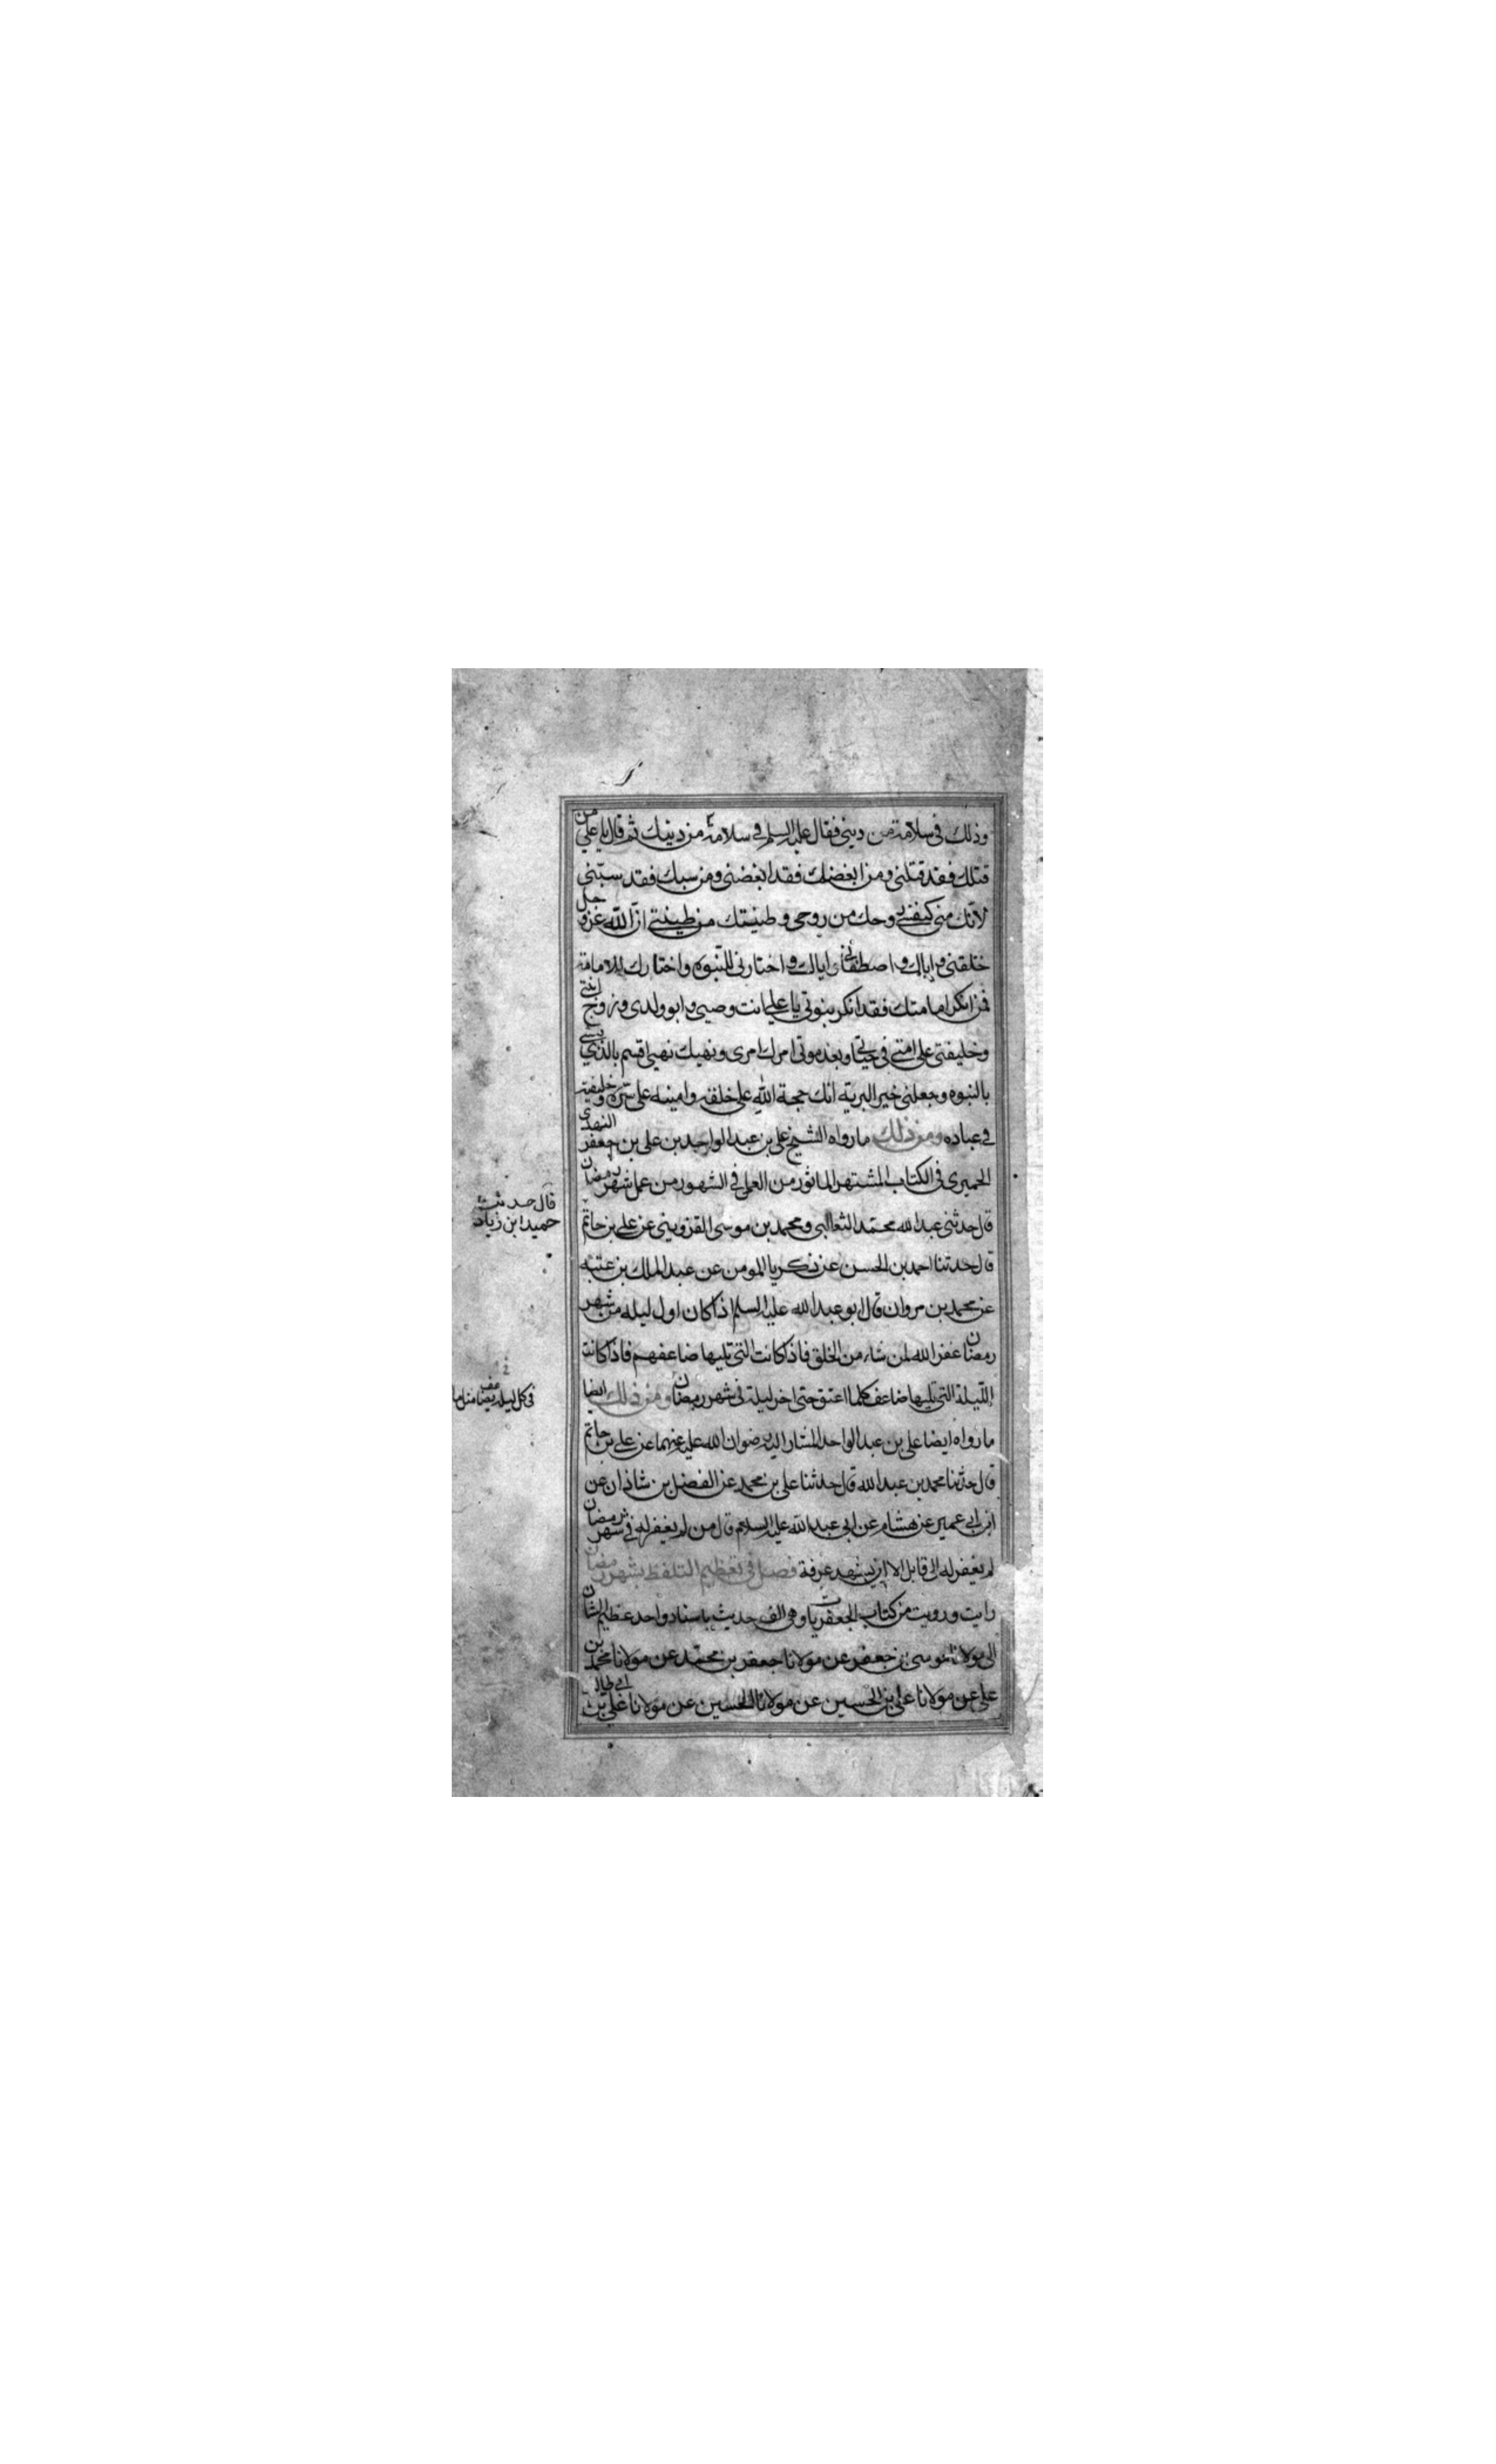 وذلك في سلامة من ديني فقال عليه السلم في سلامة من دينك ثم قال يا علي من
قتلك فقد قتلني ومن ابغضك فقد ابغضني ومن سبك فقد سبني
لانك مني كنفسي روحك من روحي وطينتك من طينتي ان الله عز و جل
خلقني واياك واصطفاني واياك واختارني للنبوه واختارك للامامة
فمن انكر امامتك فقد انكر نبوتي يا علي انت وصيي وابو ولدي وزوج ابنتي
وخليفتي على امتي في حياتي وبعد موتي امرك امري ونهيك نهيي اقسم بالذي بعثني
بالنبوه وجعلني خير البرية انك حجة الله على خلقه وامينه على سره وخليفته
في عباده ومن ذلك ما رواه الشيخ علي بن عبد الواحد بن علي بن جعفر النهدي
الحميري في الكتاب المشتهر الماثور من العمل في الشهور من عمل شهر رمضان
قال حدثني عبد الله محمد الثعالبي ومحمد بن موسى القزويني عن علي بن حاتم
قال حدثنا احمد بن الحسن عن زكريا المومن عن عبد الملك بن عتبه
عن محمد بن مروان قال ابو عبد الله عليه السلم اذا كان اول ليله من شهر
رمضان غفر الله لمن شاء من الخلق فاذا كانت التي تليها ضاعفهم فاذا كانت
الليلة التي تليها ضاعف كلما اعتق حتى اخر ليلة في شهر رمضان ومن ذلك ايضا
ما رواه ايضا علي بن عبد الواحد المشار اليه رضوان الله عليه عن علي بن حاتم
قال حدثنا محمد بن عبد الله قال حدثنا علي بن محمد عن الفضل بن شاذان عن
ابن ابي عمير عن هشام عن ابي عبد الله عليه السلام قال من لم يغفر له في شهر رمضان
لم يغفر له الى قابل الا ان يشهد عرفة فصل في تعظيم التلفظ بشهر رمضان
رايت ورويت من كتاب الجعفريات وهي الف حديث باسناد واحد عظيم الشان
الى مولانا موسى بن جعفر عن مولانا جعفر بن محمد عن مولانا محمد بن
علي عن مولانا علي بن الحسين عن مولانا الحسين عن مولانا علي بن ابي طالب
قال حدثنا
حميد ابن زياد
في كل ليله